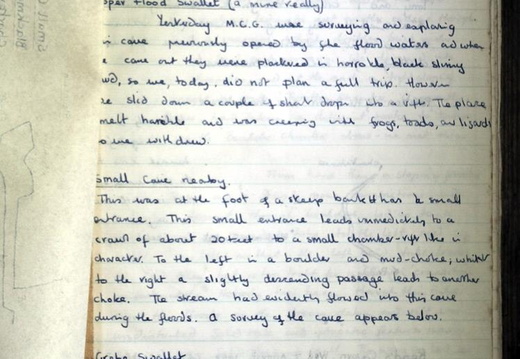 Upper Flood Swallet (a mine really)
Yesterday M.C.G. were surveying and exploring
cave previously opened by the flood waters and when
came out they were plastered in horrible, black slimy
so we, today, did not plan a full trip. However
slid down a couple of short drops into a rift. The place
smelt horrible and was creeping with frogs, toads, and lizards
so we withdrew.
Small Cave nearby.
This was at the foot of a steep bank & has a small
entrance. This small entrance leads immediately to a
crawl of about 20 feet to a small chamber - rift like in
character. To the left is a boulder and mud-choke; whilst
to the right a slightly descending passage leads to another
choke. The stream had evidently flowed into this cave
during the floods. A survey of the cave appears below.
Swallet